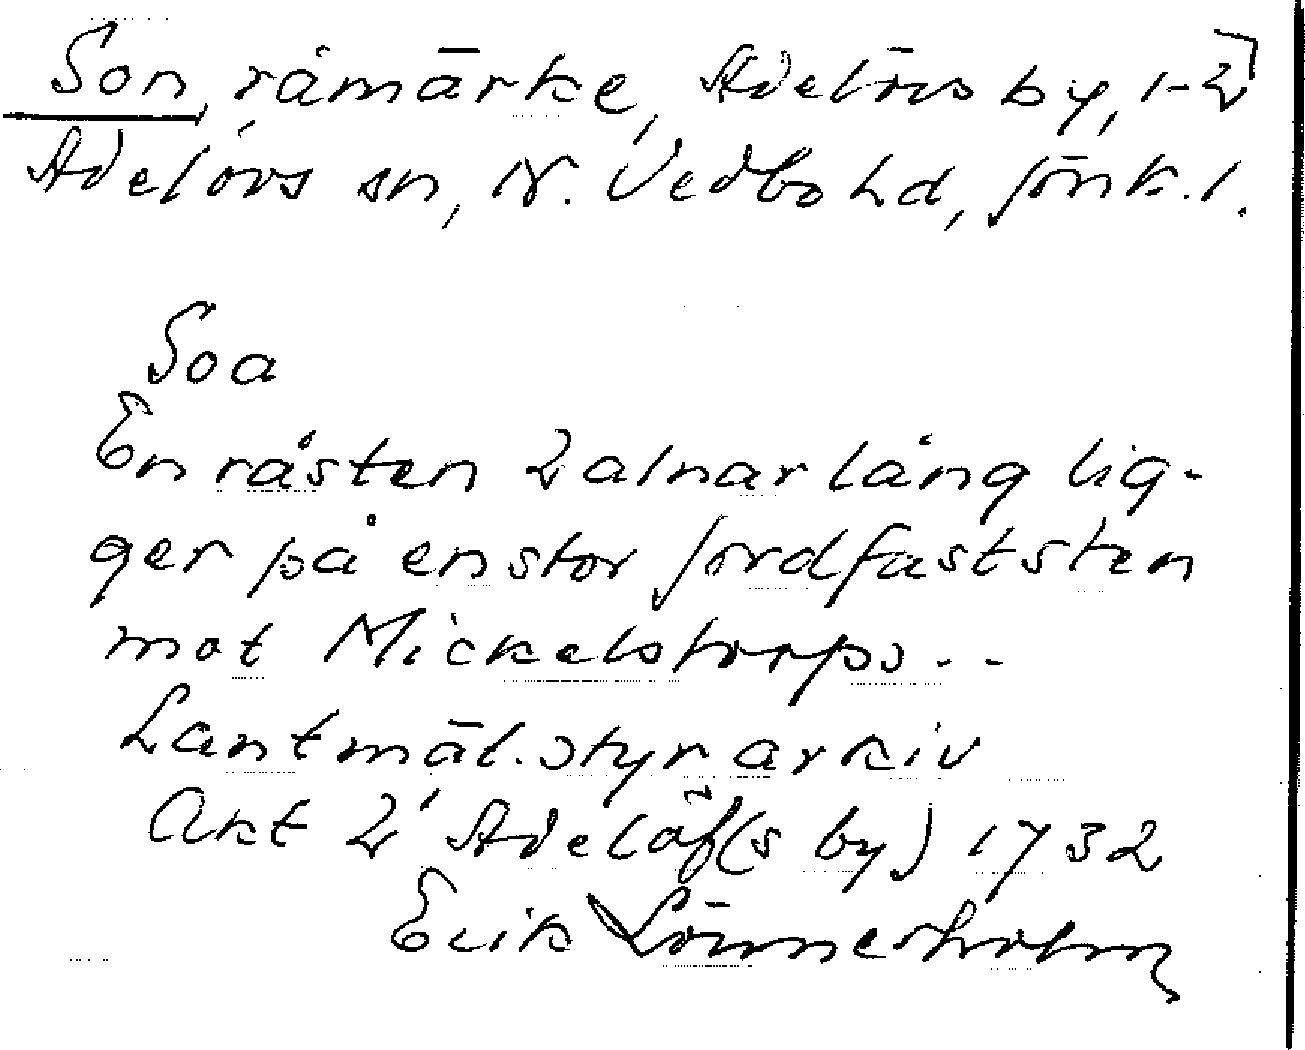 Son, råmärke, Adelövs by, 1-2
Adelövs sn, N. Vedbo hd, Jönk. l.
Soa
En råsten 2 alnar lång lig-
ger på en stor jordfast sten
mot Mickelstorps...
Lantmäl. styr arkiv
Akt 2' Adelöf(s by) 1732
Erik Lönnerholm